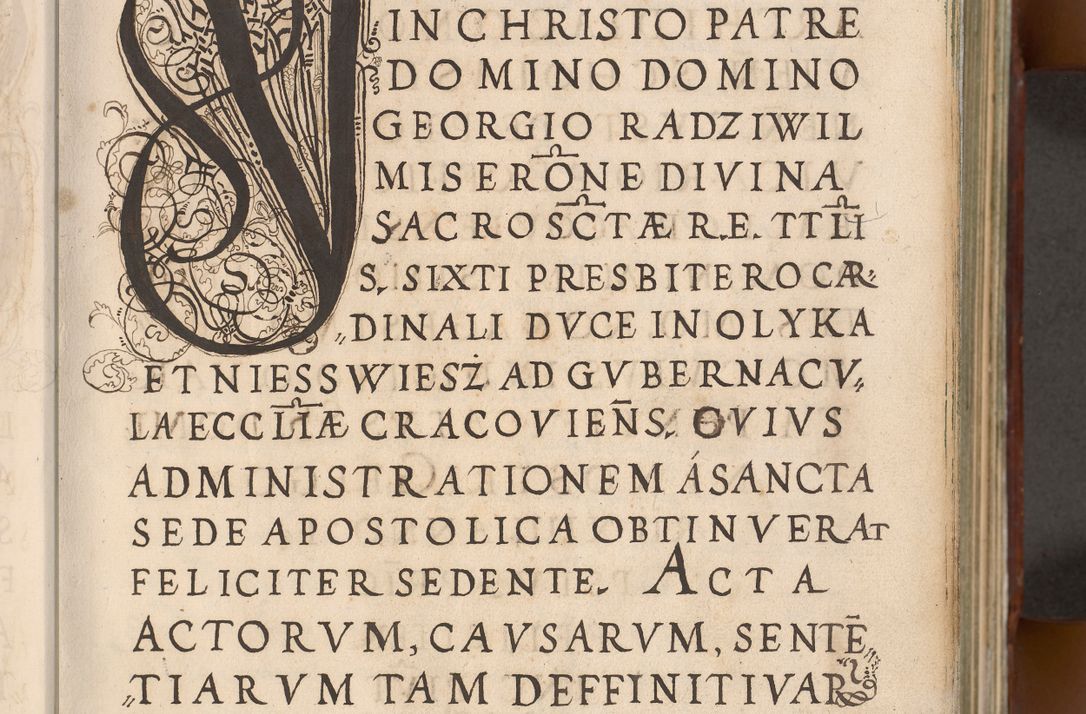 IN CHRISTO PATRE
DOMINO DOMINO
GEORGIO RADZIWIL
MISERŌNE DIVINA
SACROSC̄TÆ R.E. TTL̄I
S. SIXTI PRESBITERO CAR„
„DINALI DVCE IN OLYKA
ET NIESSWIESŻ AD GVBERNACV„
LA ECCL̄IÆ CRACOVIEN̄S. QVIVS
ADMINISTRATIONEM Á SANCTA
SEDE APOSTOLICA OBTINVERAT
FELICITER SEDENTE. ACTA
ACTORVM, CAVSARVM, SENTĒ„
„TIARVM TAM DEFFINITIVAR